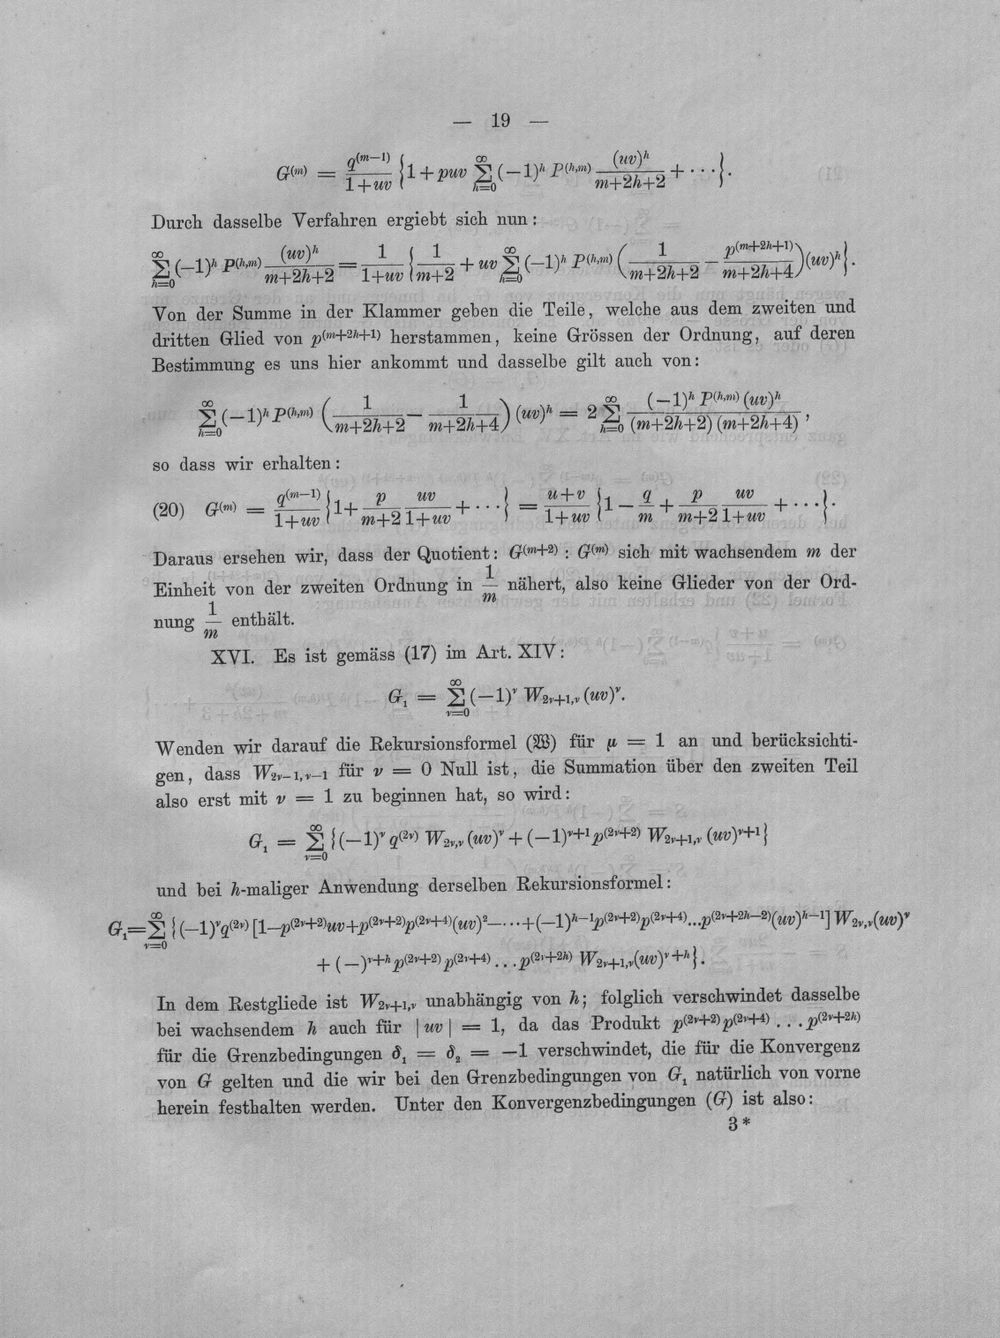 — 19 —
G^{(m)} = \frac{q^{(m-1)}}{1+uv} \left\{ 1 + puv \sum_{h=0}^{\infty} (-1)^h P^{(h,m)} \frac{(uv)^h}{m+2h+2} + \cdots \right\}.
Durch dasselbe Verfahren ergiebt sich nun:
\sum_{h=0}^{\infty} (-1)^h P^{(h,m)} \frac{(uv)^h}{m+2h+2} = \frac{1}{1+uv} \left\{ \frac{1}{m+2} + uv \sum_{h=0}^{\infty} (-1)^h P^{(h,m)} \left( \frac{1}{m+2h+2} - \frac{p^{(m+2h+1)}}{m+2h+4} \right) (uv)^h \right\}.
Von der Summe in der Klammer geben die Teile, welche aus dem zweiten und
dritten Glied von p^{(m+2h+1)} herstammen, keine Grössen der Ordnung, auf deren
Bestimmung es uns hier ankommt und dasselbe gilt auch von:
\sum_{h=0}^{\infty} (-1)^h P^{(h,m)} \left( \frac{1}{m+2h+2} - \frac{1}{m+2h+4} \right) (uv)^h = 2 \sum_{h=0}^{\infty} \frac{(-1)^h P^{(h,m)} (uv)^h}{(m+2h+2)(m+2h+4)},
so dass wir erhalten:
(20) G^{(m)} = \frac{q^{(m-1)}}{1+uv} \left\{ 1 + \frac{p}{m+2} \frac{uv}{1+uv} + \cdots \right\} = \frac{u+v}{1+uv} \left\{ 1 - \frac{q}{m} + \frac{p}{m+2} \frac{uv}{1+uv} + \cdots \right\}.
Daraus ersehen wir, dass der Quotient: G^{(m+2)} : G^{(m)} sich mit wachsendem m der
Einheit von der zweiten Ordnung in \frac{1}{m} nähert, also keine Glieder von der Ord-
nung \frac{1}{m} enthält.
XVI. Es ist gemäss (17) im Art. XIV:
G_1 = \sum_{\nu=0}^{\infty} (-1)^\nu W_{2\nu+1,\nu} (uv)^\nu.
Wenden wir darauf die Rekursionsformel (𝔚) für μ = 1 an und berücksichti-
gen, dass W_{2ν-1,ν-1} für ν = 0 Null ist, die Summation über den zweiten Teil
also erst mit ν = 1 zu beginnen hat, so wird:
G_1 = \sum_{\nu=0}^{\infty} \{ (-1)^\nu q^{(2\nu)} W_{2\nu,\nu} (uv)^\nu + (-1)^{\nu+1} p^{(2\nu+2)} W_{2\nu+1,\nu} (uv)^{\nu+1} \}
und bei h-maliger Anwendung derselben Rekursionsformel:
G_1 = \sum_{\nu=0}^{\infty} \{ (-1)^\nu q^{(2\nu)} [1 - p^{(2\nu+2)} uv + p^{(2\nu+2)} p^{(2\nu+4)} (uv)^2 - \cdots + (-1)^{h-1} p^{(2\nu+2)} p^{(2\nu+4)} ... p^{(2\nu+2h-2)} (uv)^{h-1}] W_{2\nu,\nu} (uv)^\nu
+ (-)^{\nu+h} p^{(2\nu+2)} p^{(2\nu+4)} ... p^{(2\nu+2h)} W_{2\nu+1,\nu} (uv)^{\nu+h} \}.
In dem Restgliede ist W_{2ν+1,ν} unabhängig von h; folglich verschwindet dasselbe
bei wachsendem h auch für |uv| = 1, da das Produkt p^{(2ν+2)} p^{(2ν+4)} ... p^{(2ν+2h)}
für die Grenzbedingungen δ_1 = δ_2 = —1 verschwindet, die für die Konvergenz
von G gelten und die wir bei den Grenzbedingungen von G_1 natürlich von vorne
herein festhalten werden. Unter den Konvergenzbedingungen (G) ist also:
3*